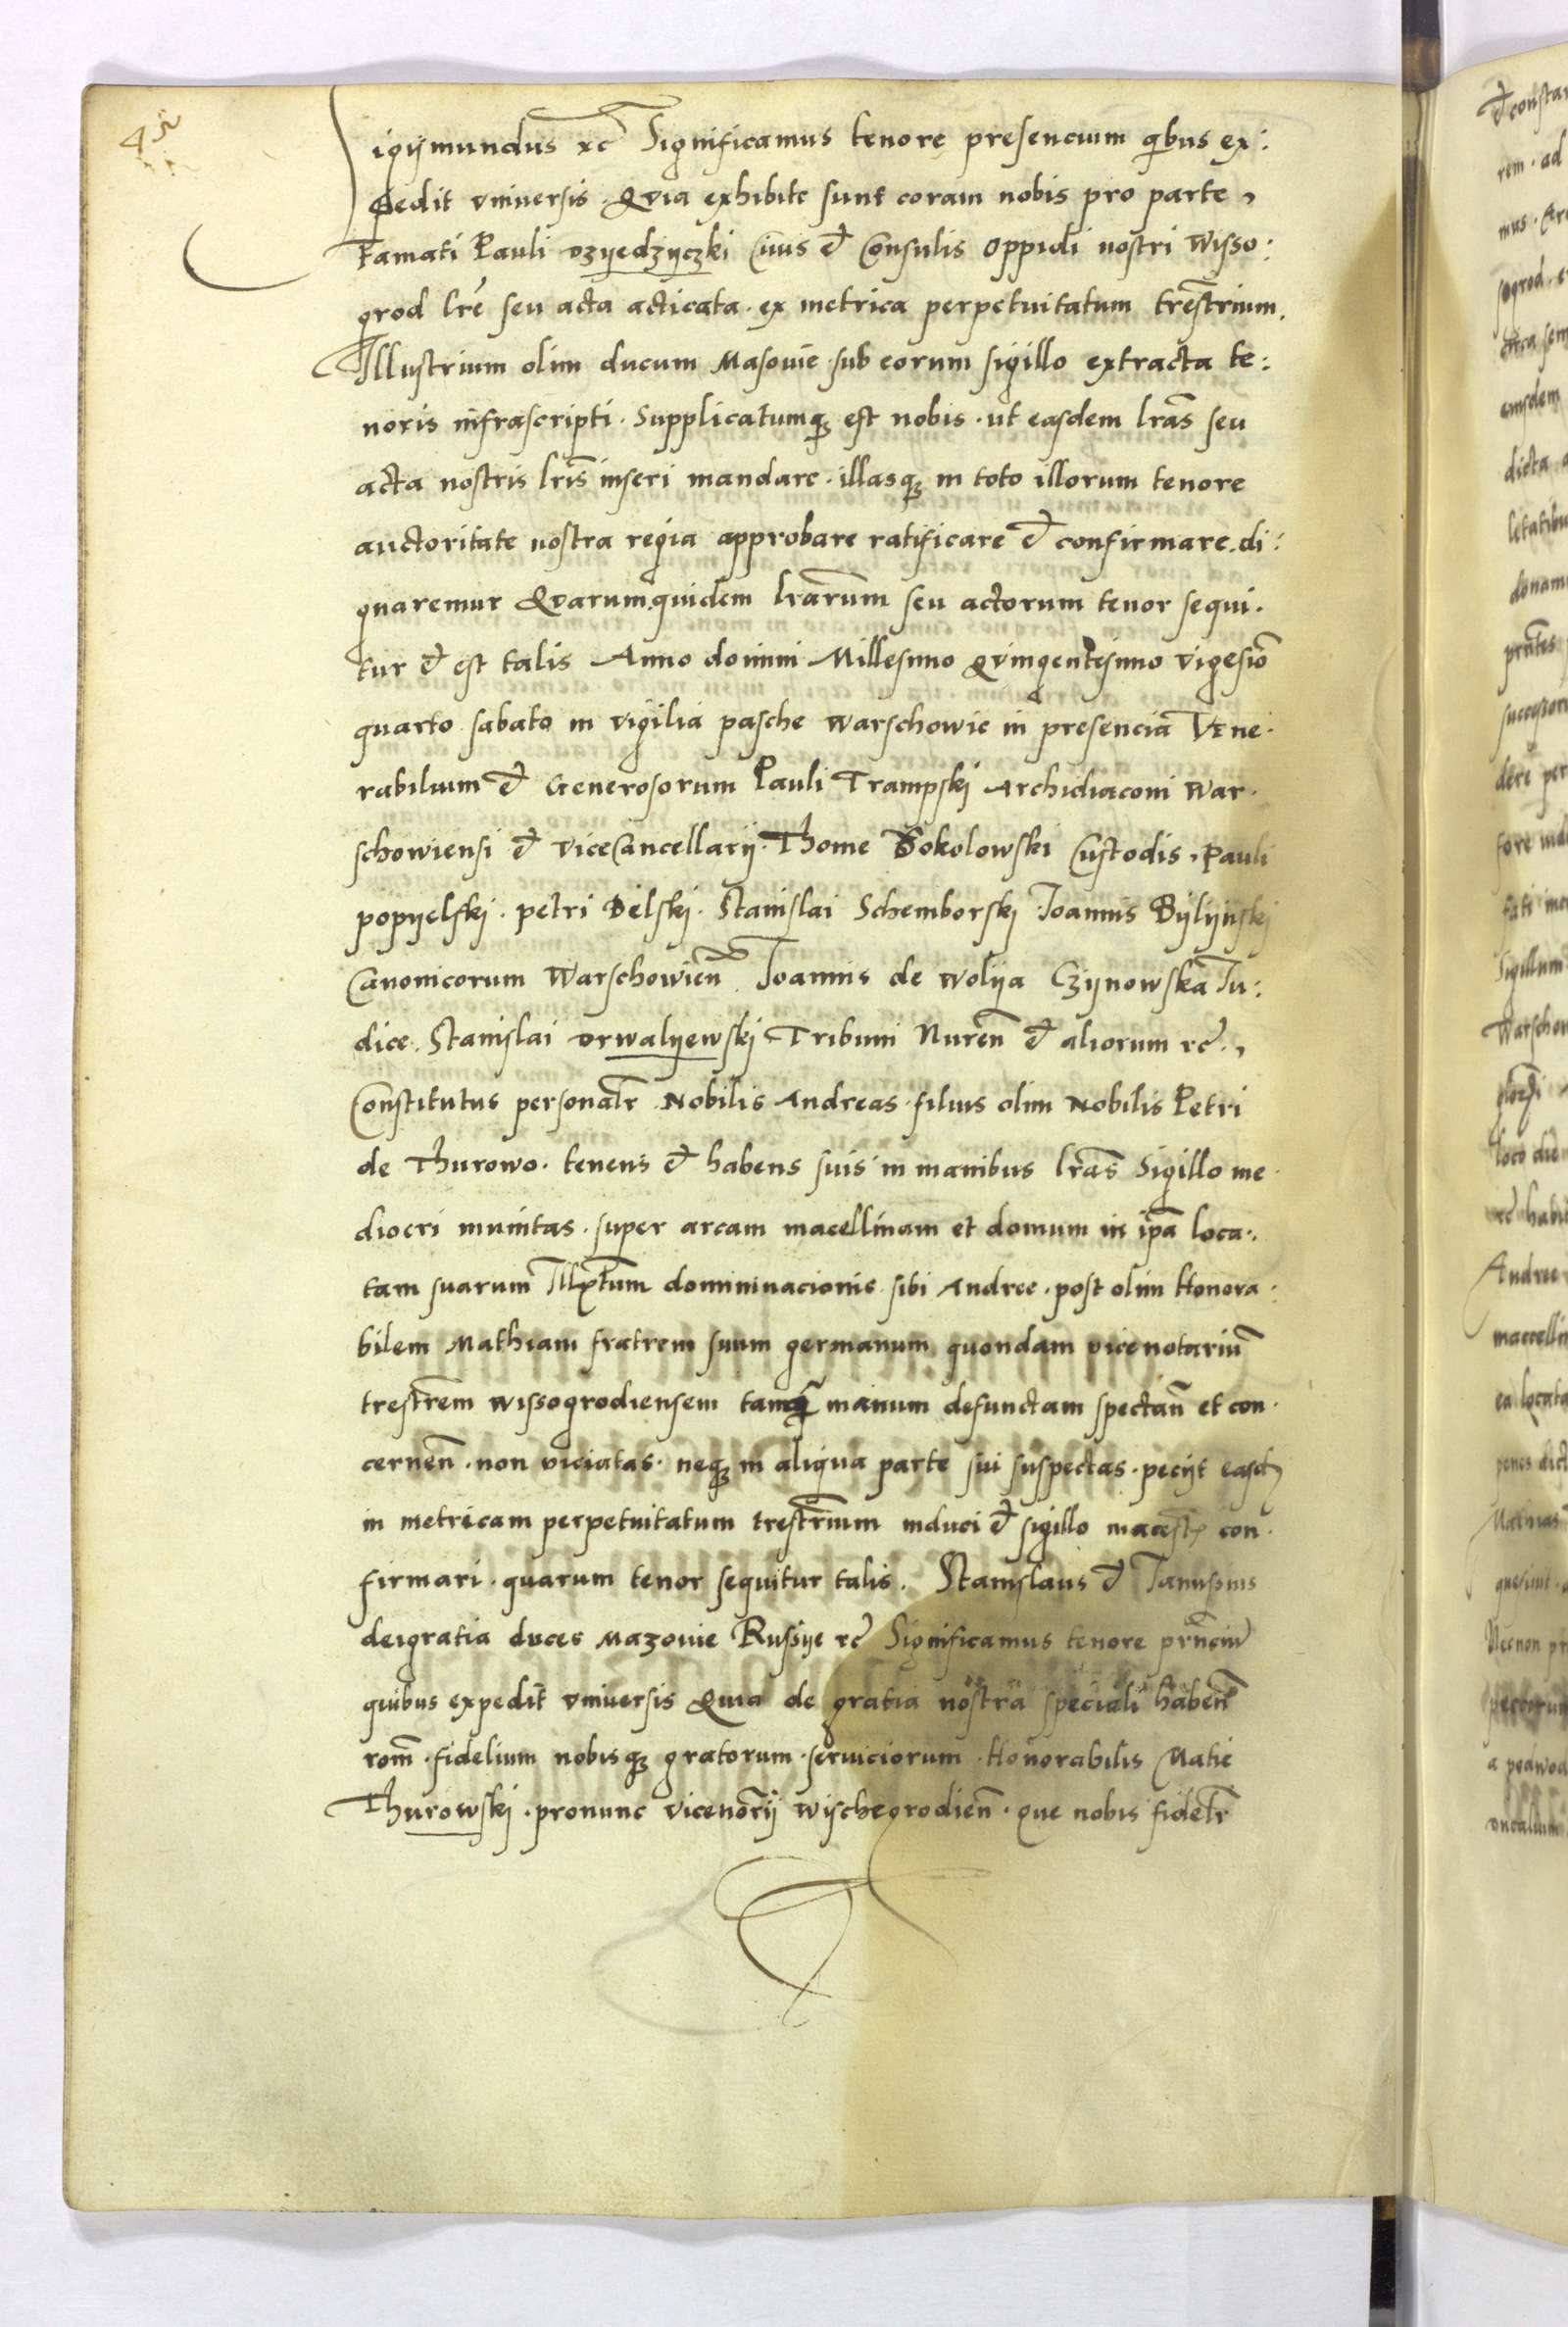 45
igijmundus xc̄ Significamus tenore presencium q̄bus ex:
pedit vniuersis. Quia exhibite sunt coram nobis pro parte,
Famati Pauli Dzijedzijczki Ciuis et Consulis Oppidi nostri Wisso:
grod lr̄e seu acta acticata. ex metrica perpetuitatum trr̄estrium.
Illustrium olim ducum Masouie sub eorum sigillo extracta te:
noris infrascripti. Supplicatumq; est nobis. ut easdem lr̄as seu
acta nostris lr̄is inseri mandare. illasq; in toto illorum tenore
auctoritate nostra regia approbare ratificare et confirmare. di:
gnaremur Quarumquidem lr̄arum seu actorum tenor sequi.
tur et est talis Anno domini Millesimo Quingentesimo vigesīo
quarto sabato in vigilia pasche Warschowie in presencia Vene.
rabilium et Generosorum Pauli Trampskj Archidiaconi War.
schowiensi et viceCancellarij. Thome Sokolowski Custodis. Pauli
popijelskj. petri Belskj. Stanislai Schemborskj Joannis Bylijnskj
Canonicorum Warschowien̄. Joannis de Wolija Czijnowska Ju:
dice. Stanislai Orwalijewskj Tribuni Nuren̄ et aliorum rc̄.,
Constitutus personalr̄. Nobilis Andreas. filius olim Nobilis Petri
de Thurowo. tenens et habens suis in manibus lr̄as Sigillo me
diocri munitas. super arcam macellinam et domum in ip̄a loca..
tam suarum Ill[...]tum domininacionis. sibi Andree. post olim Honora:
bilem Mathiam fratrem suum germanum quondam vicenotariū
trestr̄em wissogrodiensem tamq̄ manum defunctam spectan̄ et con.
cernen̄. non viciatas. neq; in aliqua parte sui suspectas. pecijt easd
in metricam perpetuitatum trestr̄ium induci et sigillo maiest con.
firmari. quarum tenor sequitur talis. Stanislaus et Janussius
deigratia duces Mazouie Russije rc̄ Significamus tenore prn̄ciū
quibus expedit vniuersis Quia de gratia nostra speciali haben̄
rom̄. fidelium nobisq; gratorum. seruiciorum. Honorabilis Matie
Thurowskj. pronunc vicenor̄ij wischegrodien̄. que nobis fidelr̄